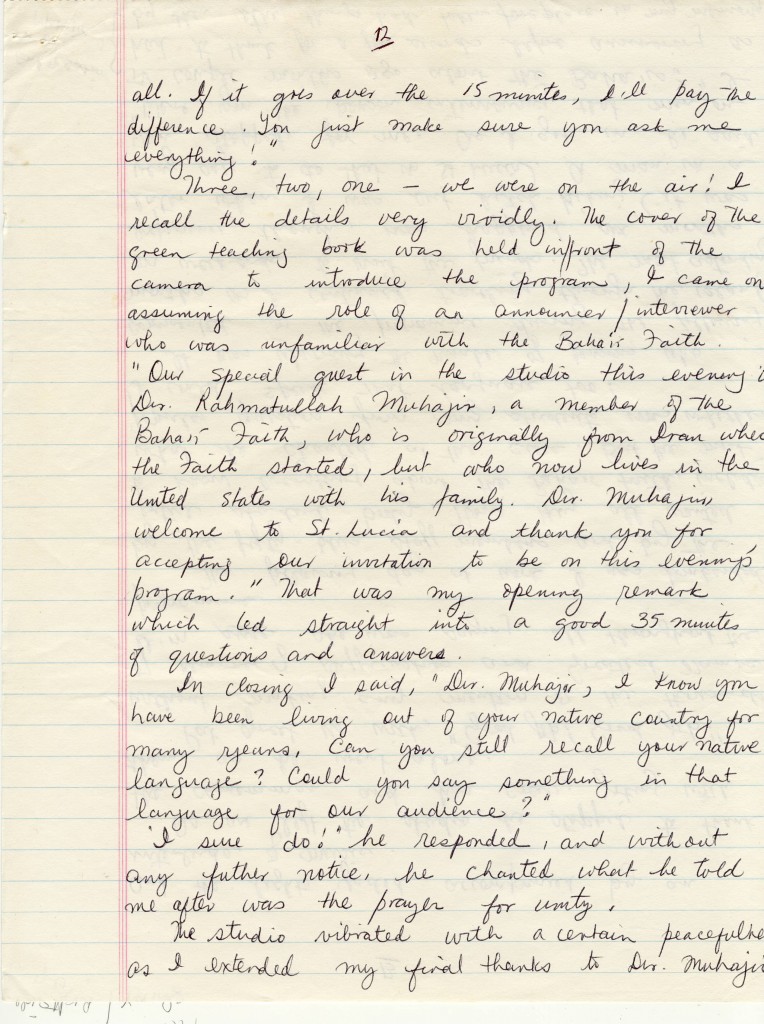 12
all. If it goes over the 15 minutes, I'll pay the
difference. You just make sure you ask me
everything!"
Three, two, one — we were on the air! I
recall the details very vividly. The cover of the
green teaching book was held in/front of the
camera to introduce the program, I came on
assuming the role of an announcer/interviewer
who was unfamiliar with the Baha'i Faith.
"Our special guest in the studio this evening i
Dr. Rahmatullah Muhajir, a member of the
Baha'i Faith, who is originally from Iran whe
the Faith started, but who now lives in the
United States with his family. Dr. Muhajir,
welcome to St. Lucia and thank you for
accepting our invitation to be on this evening's
program." That was my opening remark
which led straight into a good 35 minutes
of questions and answers.
In closing I said, "Dr. Muhajir, I know you
have been living out of your native country for
many years. Can you still recall your native
language? Could you say something in that
language for our audience?"
"I sure do!" he responded, and without
any futher notice, he chanted what he told
me after was the prayer for unity.
The studio vibrated with a certain peacefulne
as I extended my final thanks to Dr. Muhajir